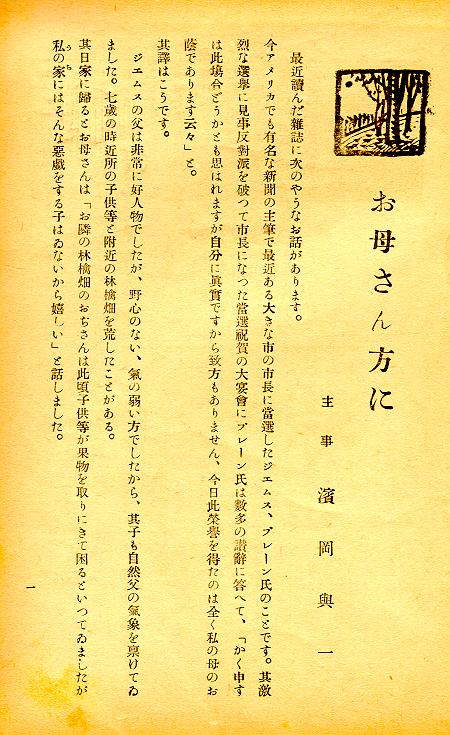 お母さん方に
主事　濱岡與一
最近讀んだ雜誌に次のやうなお話があります。
今アメリカでも有名な新聞の主筆で最近ある大きな市の市長に當選したジエムス、ブレーン氏のことです。其激
烈な選擧に見事反對派を破つて市長になつた當選祝賀の大宴會にブレーン氏は數多の讃辭に答へて、「かく申す
は此場合どうかとも思はれますが自分に眞實ですから致方もありません、今日此榮譽を得たのは全く私の母のお
蔭であります云々」と。
其譯はこうです。
ジエムスの父は非常に好人物でしたが、野心のない、氣の弱い方でしたから、其子も自然父の氣象を禀けてゐ
ました。七歲の時近所の子供等と附近の林檎畑を荒したことがある。
其日家に歸るとお母さんは「お隣の林檎畑のおぢさんは此頃子供等が果物を取りにきて困るといつてゐましたが
私の家にはそんな惡戲をする子はゐないから嬉しい」と話しました。
一